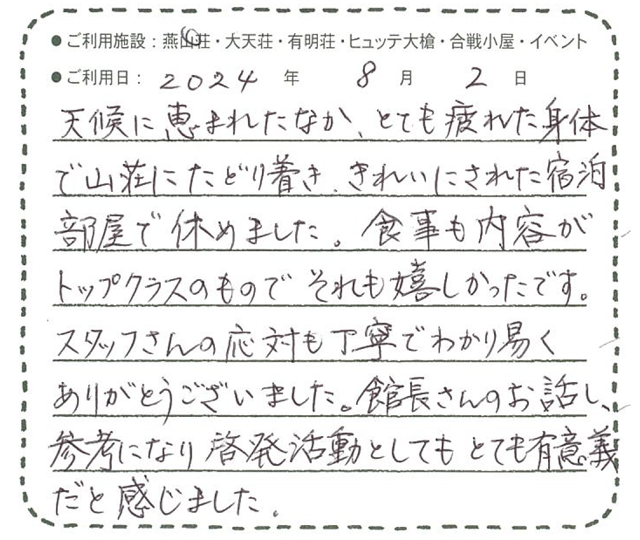 ●ご利用施設：燕山荘・大天荘・有明荘・ヒュッテ大槍・合戦小屋・イベント
●ご利用日：2024年 8月 2日
天候に恵まれたなか、とても疲れた身体
で山荘にたどり着き、きれいにされた宿泊
部屋で休めました。食事も内容が
トップクラスのものでそれも嬉しかったです。
スタッフさんの応対も丁寧でわかり易く
ありがとうございました。館長さんのお話し、
参考になり啓発活動としてもとても有意義
だと感じました。